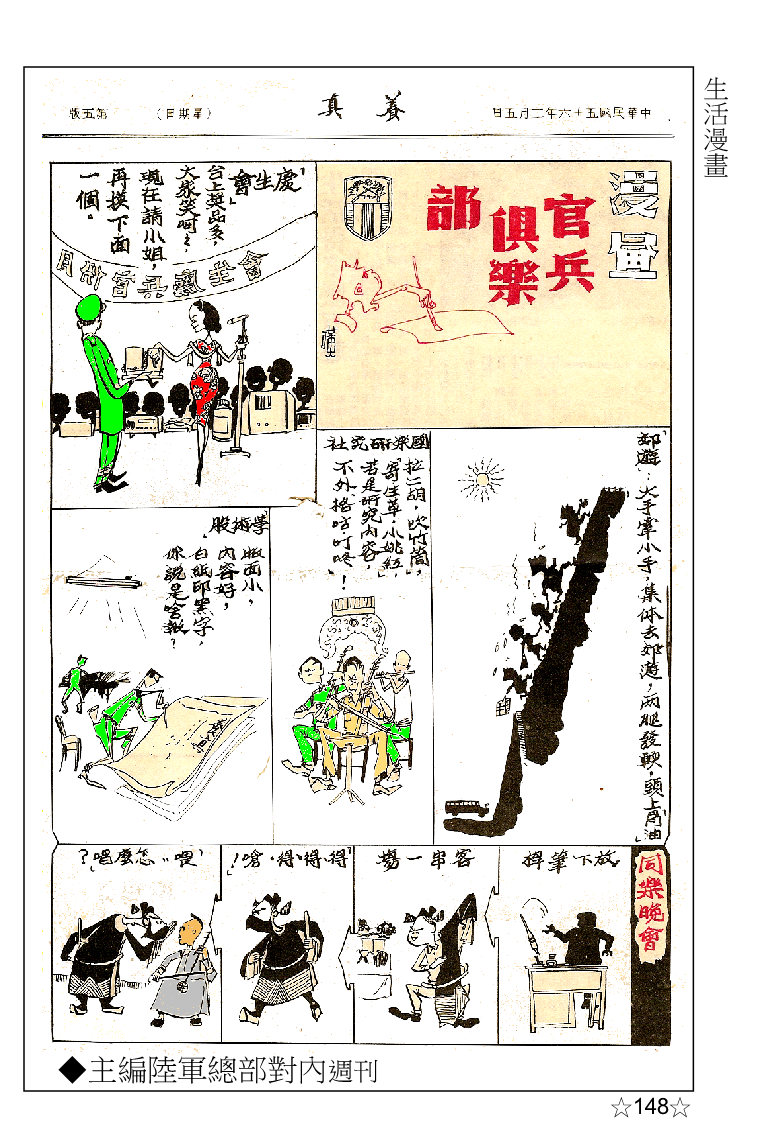 生活漫畫
中華民國五十六年三月五日
養真
（星期日）
第五版
漫畫
官兵
俱樂
部
「慶生會」
台上獎品多，
大家笑呵々，
現在請小姐，
再摸下面
一個。
會生慶兵官份月
郊遊：大手牽小手，集体去郊遊，兩腿發軟，頭上冒油」
國樂研究社
「拉二胡，吹竹簡」，
「寄生草，小姚紅」，
若是研究內容，
不外格咕叮咚」！
學術股
「版面小，
內容好，
白紙印黑字，
你說是啥報？
同樂晚會
放下筆桿
客串一場
「得・得・得・嗆！」
「喂“怎麼唱？」
◆主編陸軍總部對內週刊
☆148☆